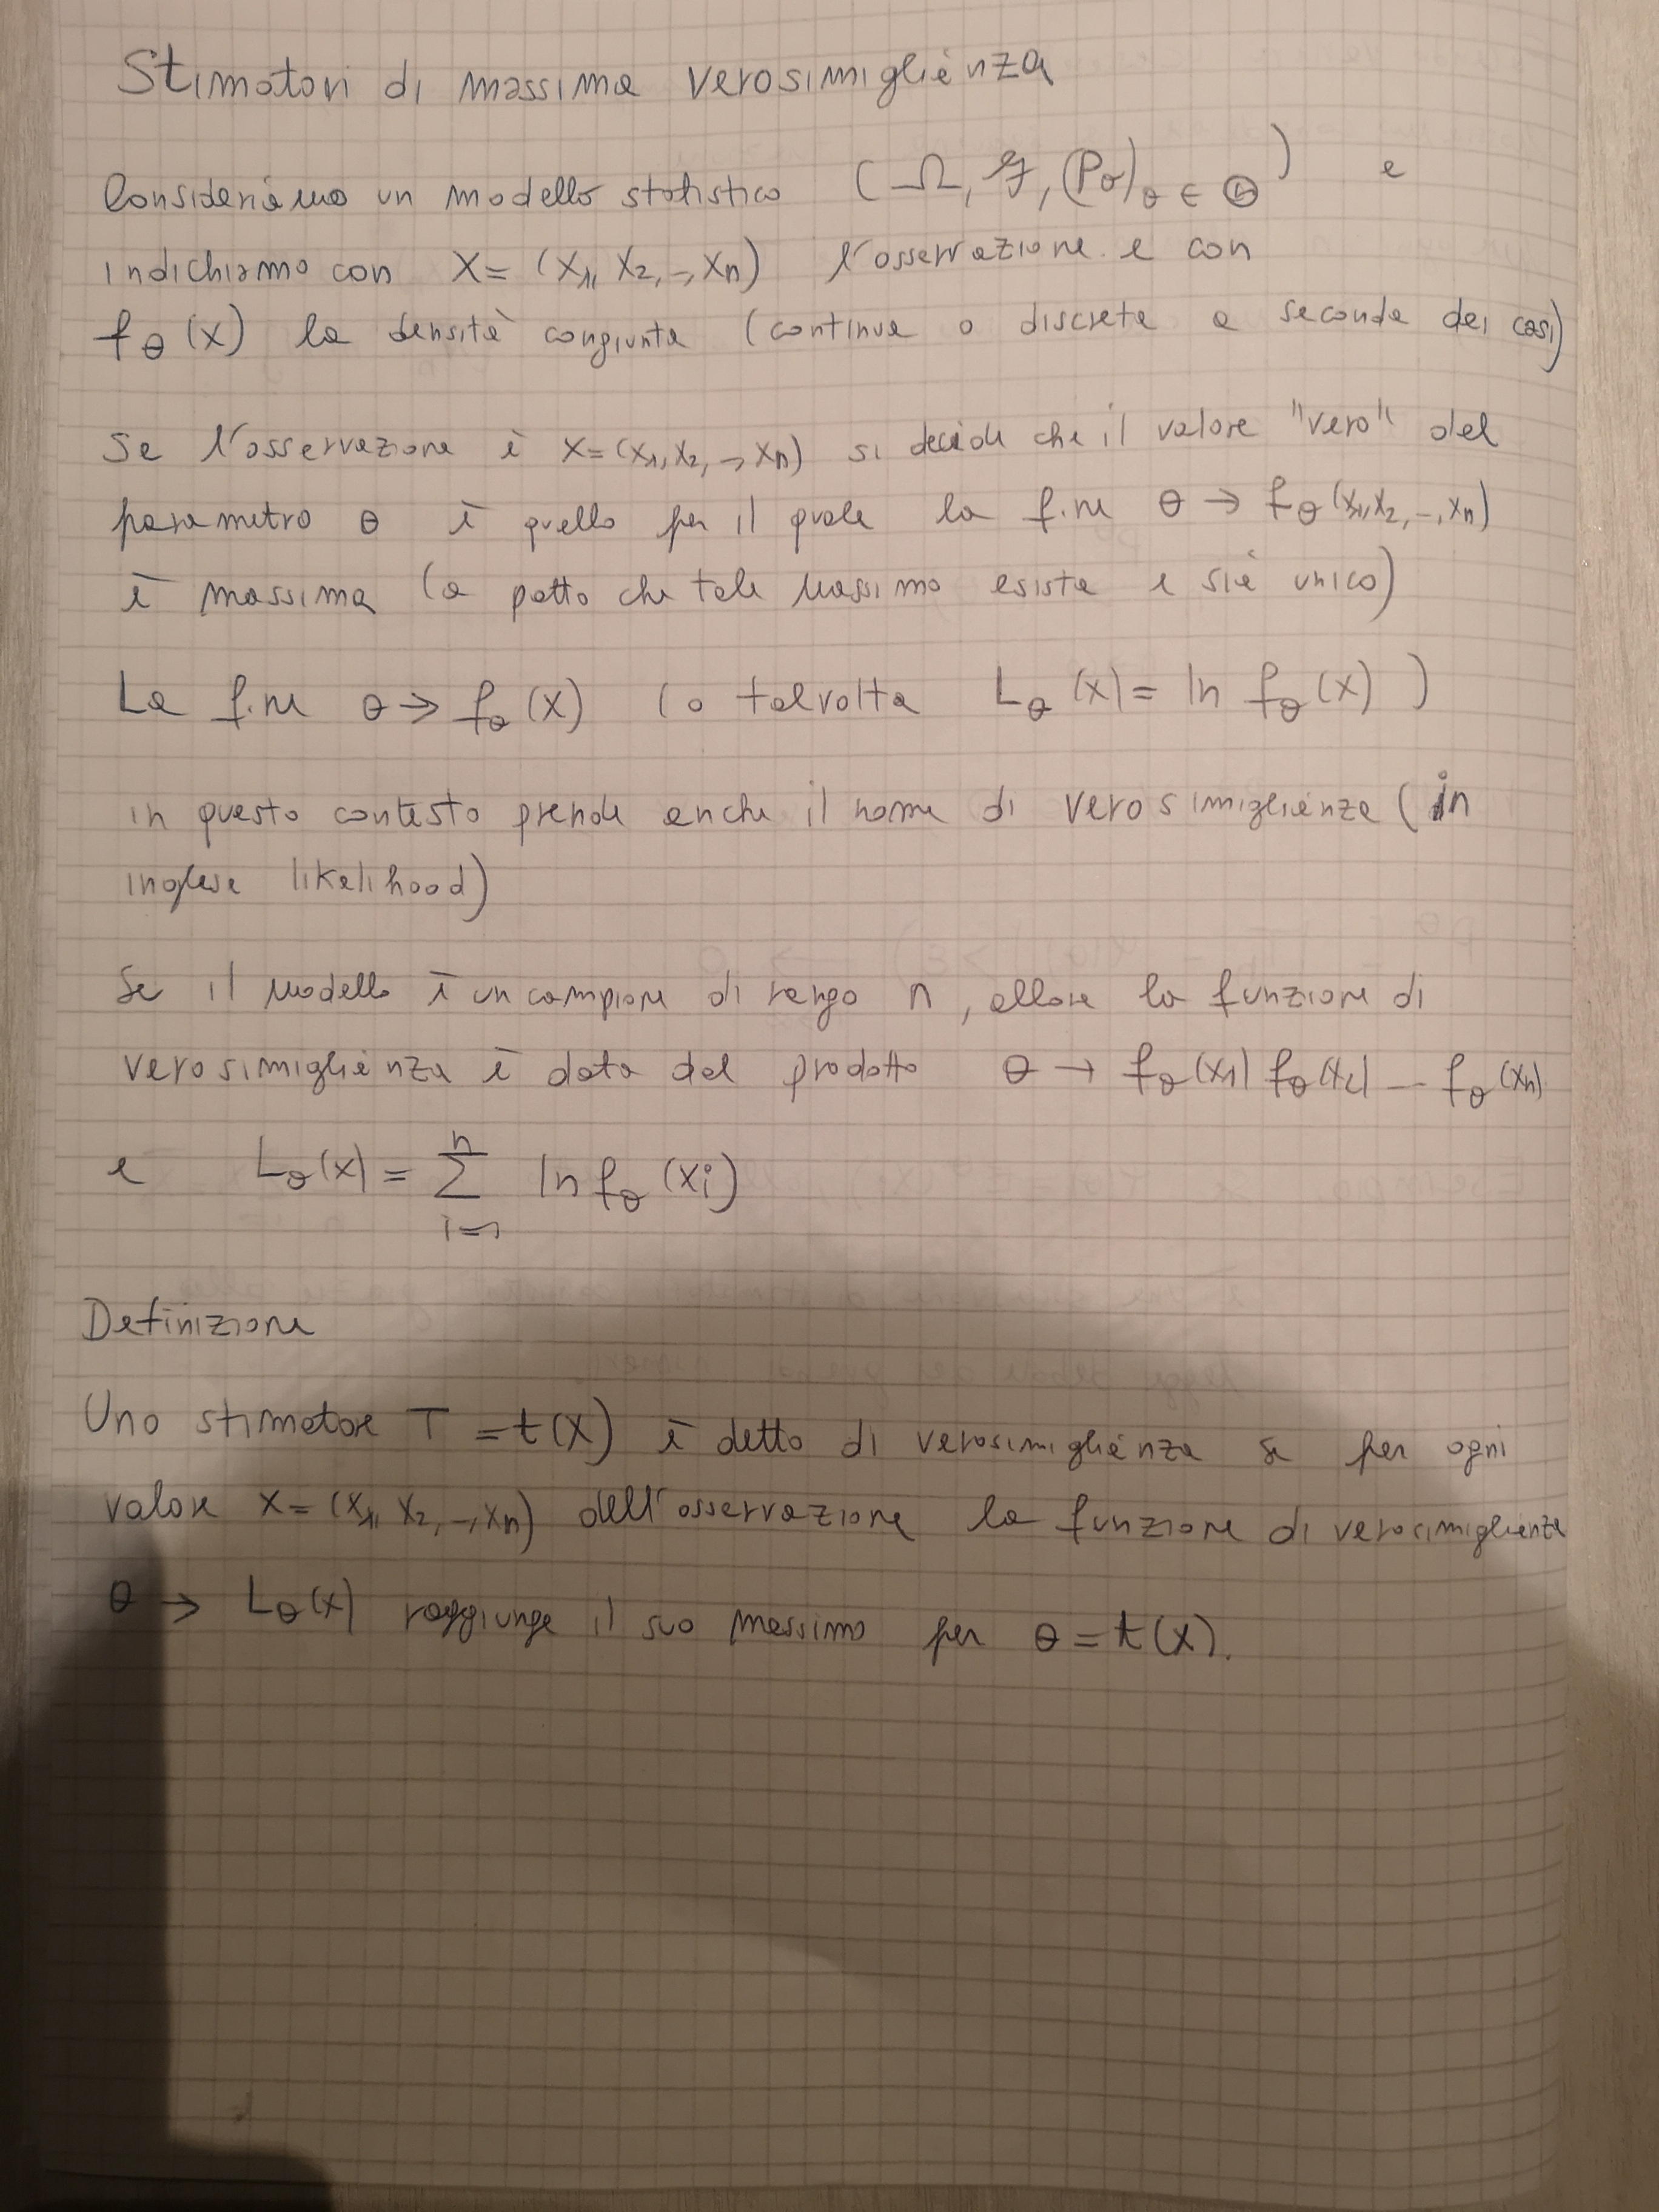 Stimatori di massima verosimiglianza
Consideriamo un modello statistico (Ω, F, (Pθ)θ ∈ Θ) e
indichiamo con X = (X1, X2, -, Xn) l'osservazione e con
fθ(x) la densità congiunta (continua o discreta a seconda dei casi)
Se l'osservazione è x = (x1, x2, -, xn) si decide che il valore "vero" del
parametro θ è quello per il quale la f.ne θ → fθ(x1, x2, -, xn)
è massima (a patto che tale massimo esista e sia unico)
La f.ne θ → fθ(x) (o talvolta Lθ(x) = ln fθ(x))
in questo contesto prende anche il nome di verosimiglianza (in
inglese likelihood)
Se il modello è un campione di rango n, allora la funzione di
verosimiglianza è data dal prodotto θ → fθ(x1) fθ(x2) --- fθ(xn)
e Lθ(x) = Σ i=1 n ln fθ(xi)
Definizione
Uno stimatore T = t(X) è detto di verosimiglianza se per ogni
valore x = (x1, x2, -, xn) dell'osservazione la funzione di verosimiglianza
θ → Lθ(x) raggiunge il suo massimo per θ = t(x).